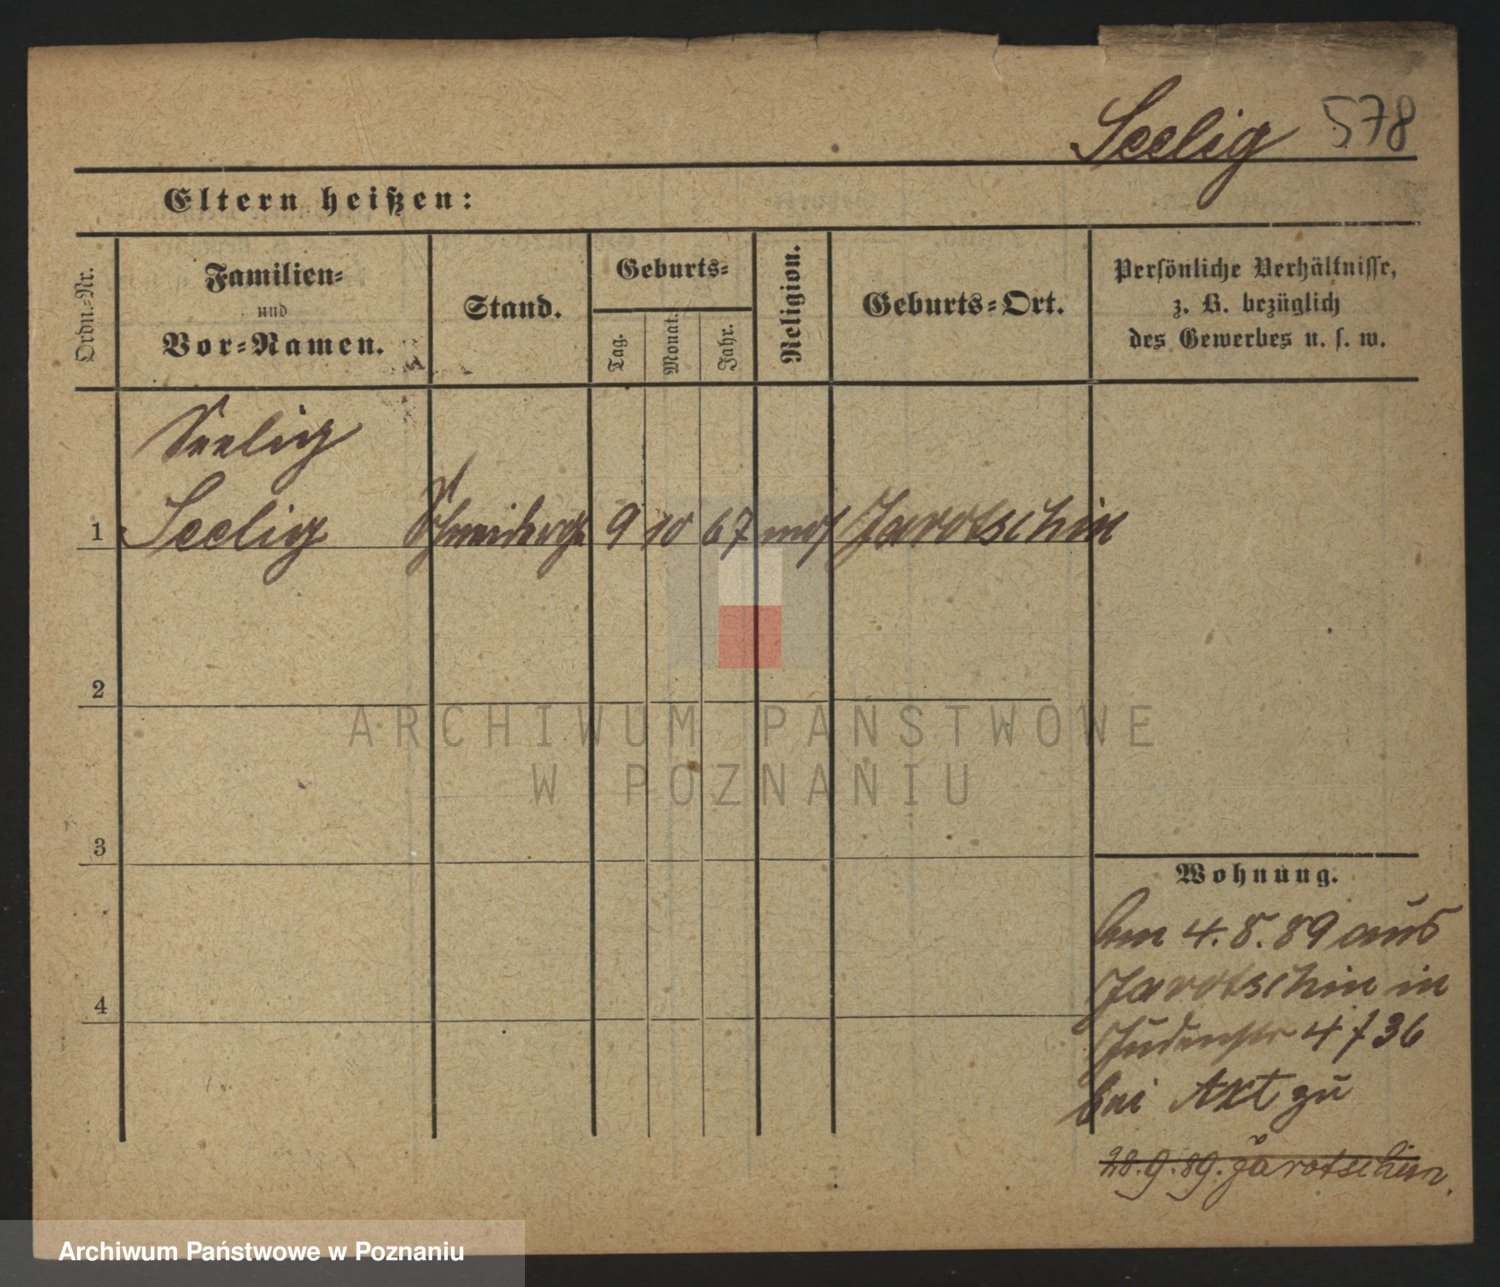 Seelig 578
Eltern heißen:
Ordn.-Nr.
Familien-
und
Vor-Namen.
Stand.
Geburts-
Tag.
Monat.
Jahr.
Religion.
Geburts-Ort.
Persönliche Verhältnisse,
z. B. bezüglich
des Gewerbes u. s. w.
Seelig
1 Seelig 9 10 67 mos Jarotschin
2
3
4
Wohnung.
Am 4.8.89 aus
Jarotschin in
Judenstr 4/36
bei Axt zu
28.9.89. Jarotschin.
ARCHIWUM PAŃSTWOWE
W POZNANIU
Archiwum Państwowe w Poznaniu